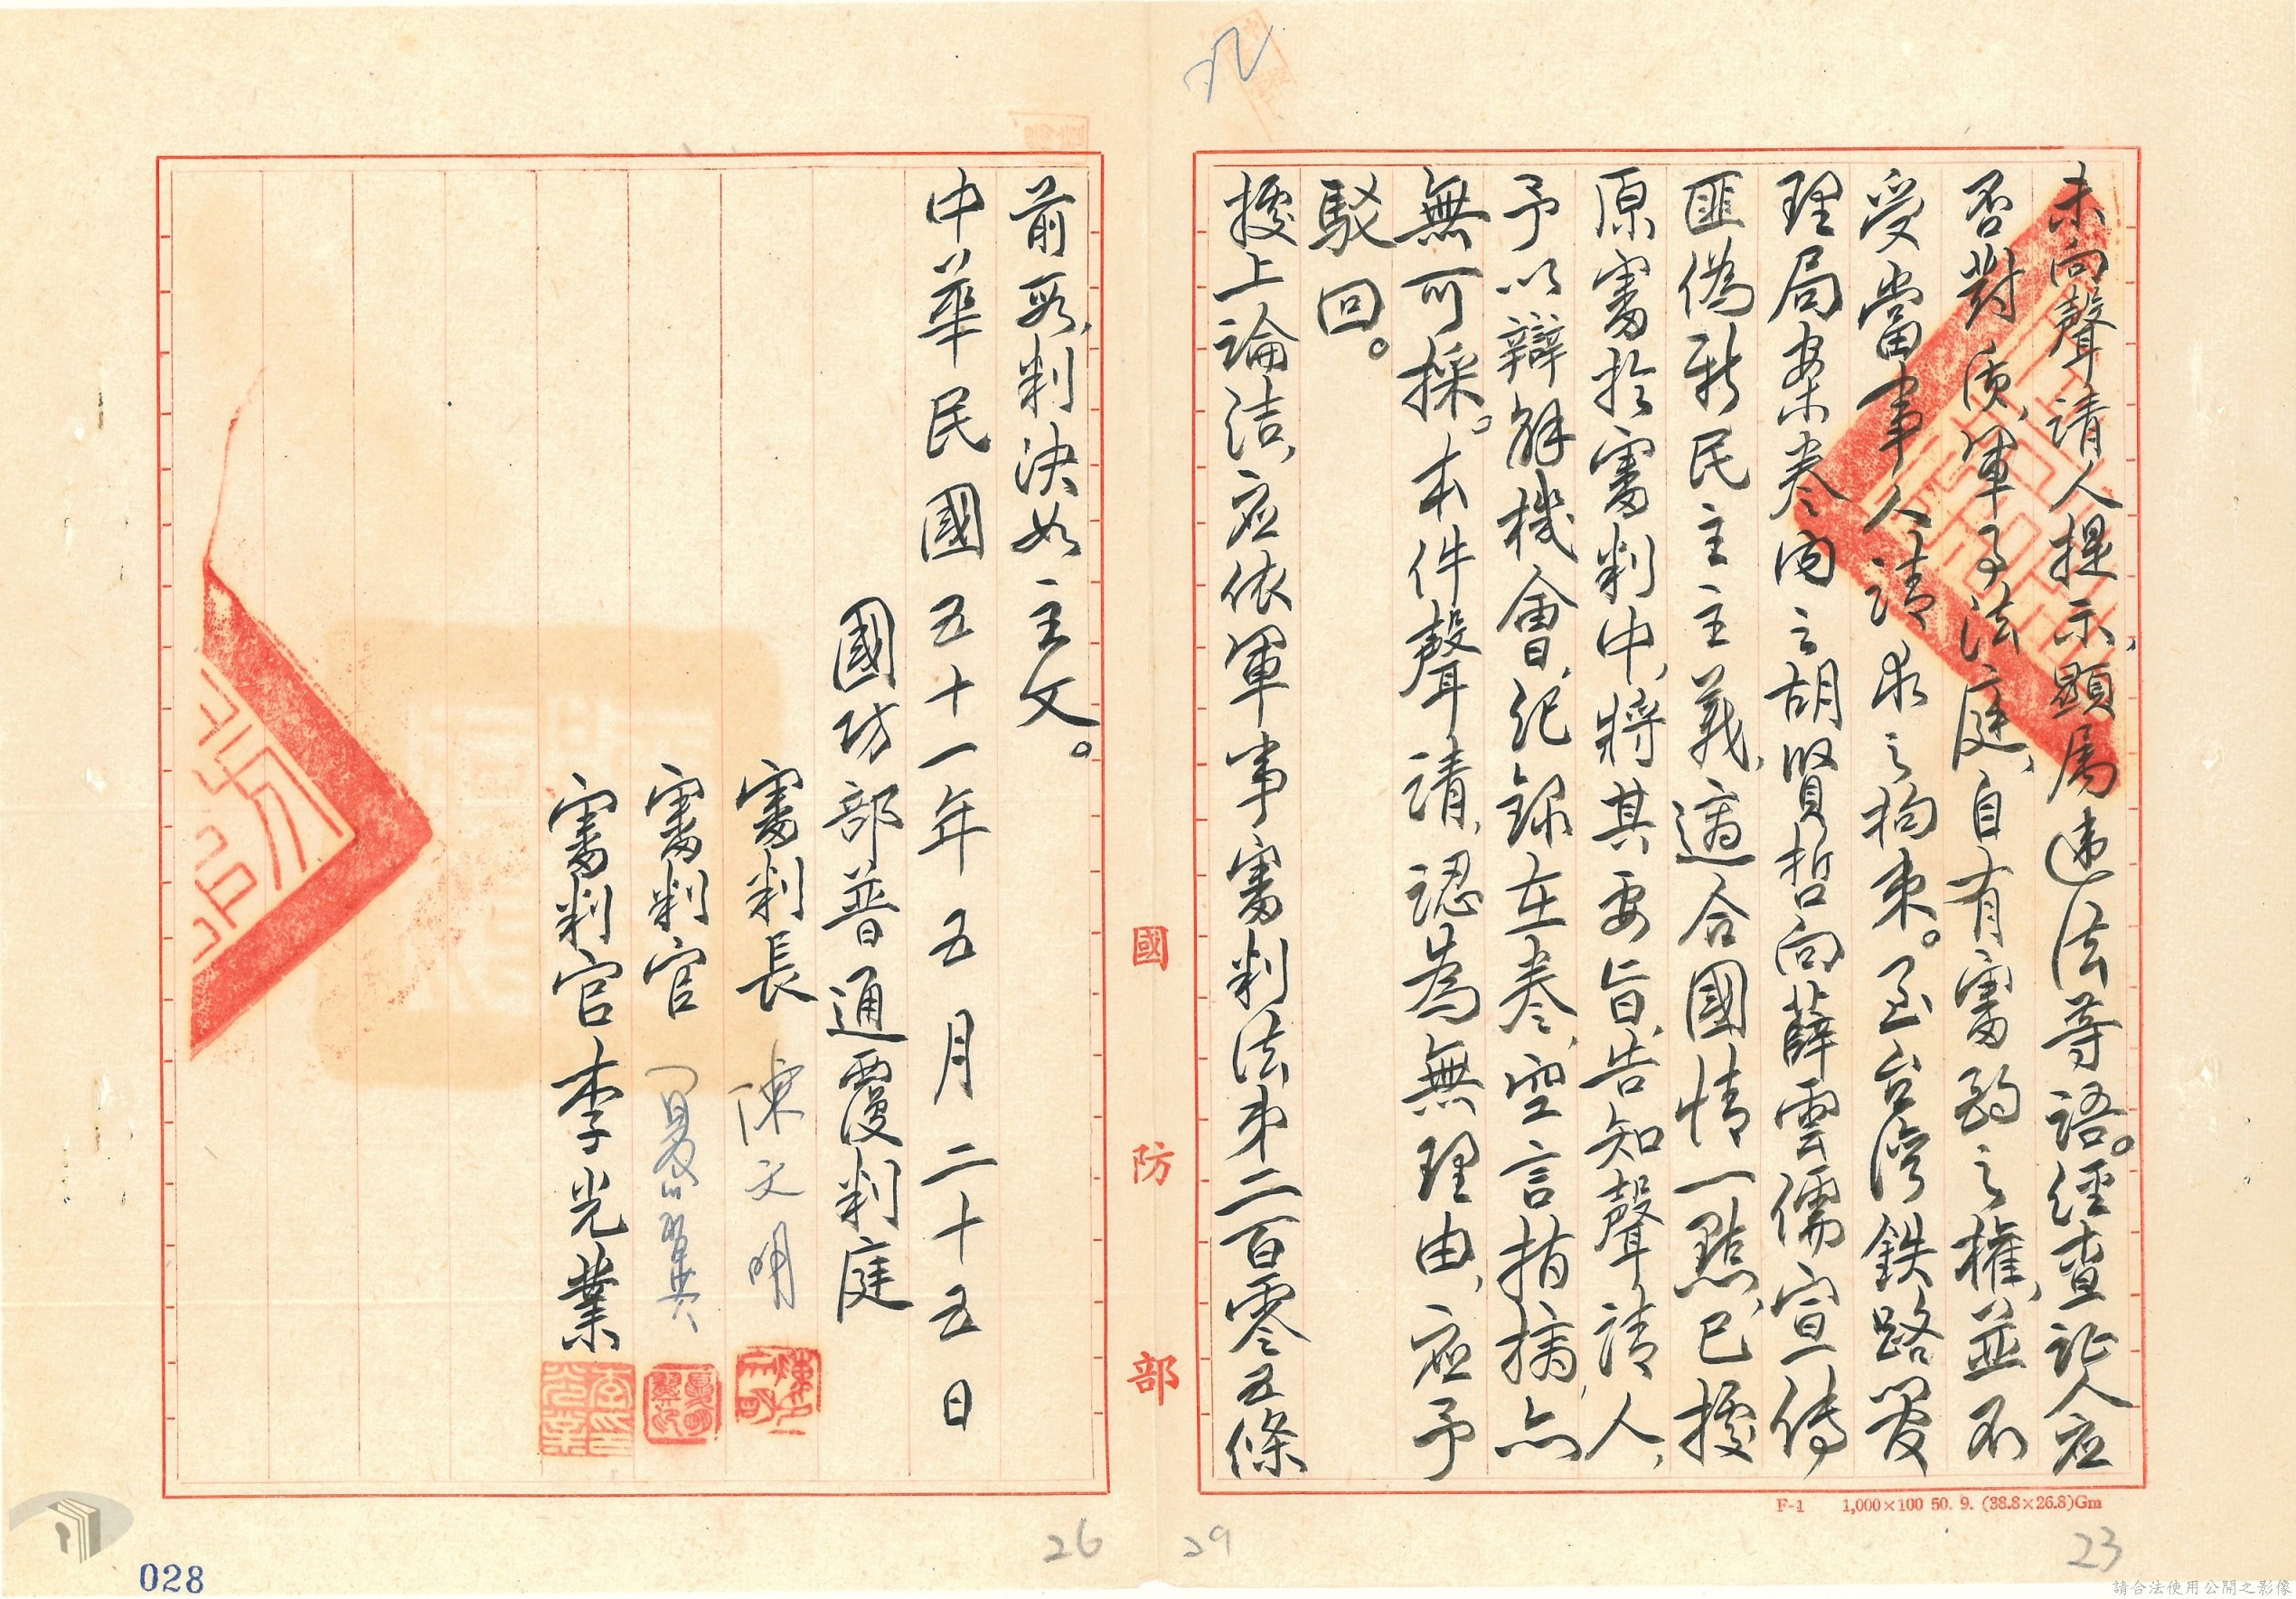 未向聲請人提示、顯屬違法等語。經查証人应
否對質、軍事法庭、自有審酌之權、並不
受當事人請求之拘束。至台湾鉄路管
理局案卷內之胡賢哲向薛雲儒宣傳
匪偽新民主主義、適合國情一點、已據
原審於審判中、將其要旨、告知聲請人、
予以辯解機會、紀錄在卷、空言指摘、亦
無可採。本件聲請、認為無理由、应予
駁回。
據上論結、应依軍事審判法第二百零五條
前段、判決如主文。
中華民國五十一年五月二十五日
國防部普通覆判庭
審判長 陳文明
審判官
審判官 李光業
國防部
F-1 1,000×100 50. 9. (38.8×26.8)Gm
26
29
23
028
請合法使用公開之影像